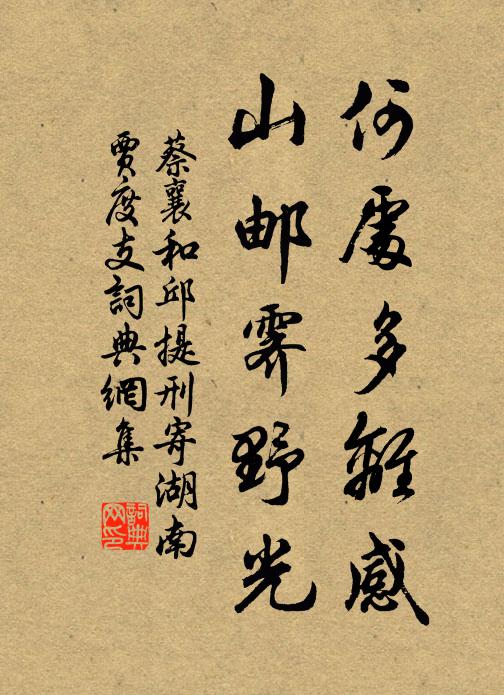 何處多離感
山邮霽野光
蔡襄和邱提刑寄湖南
賈度支詞典網集
詞典
网印